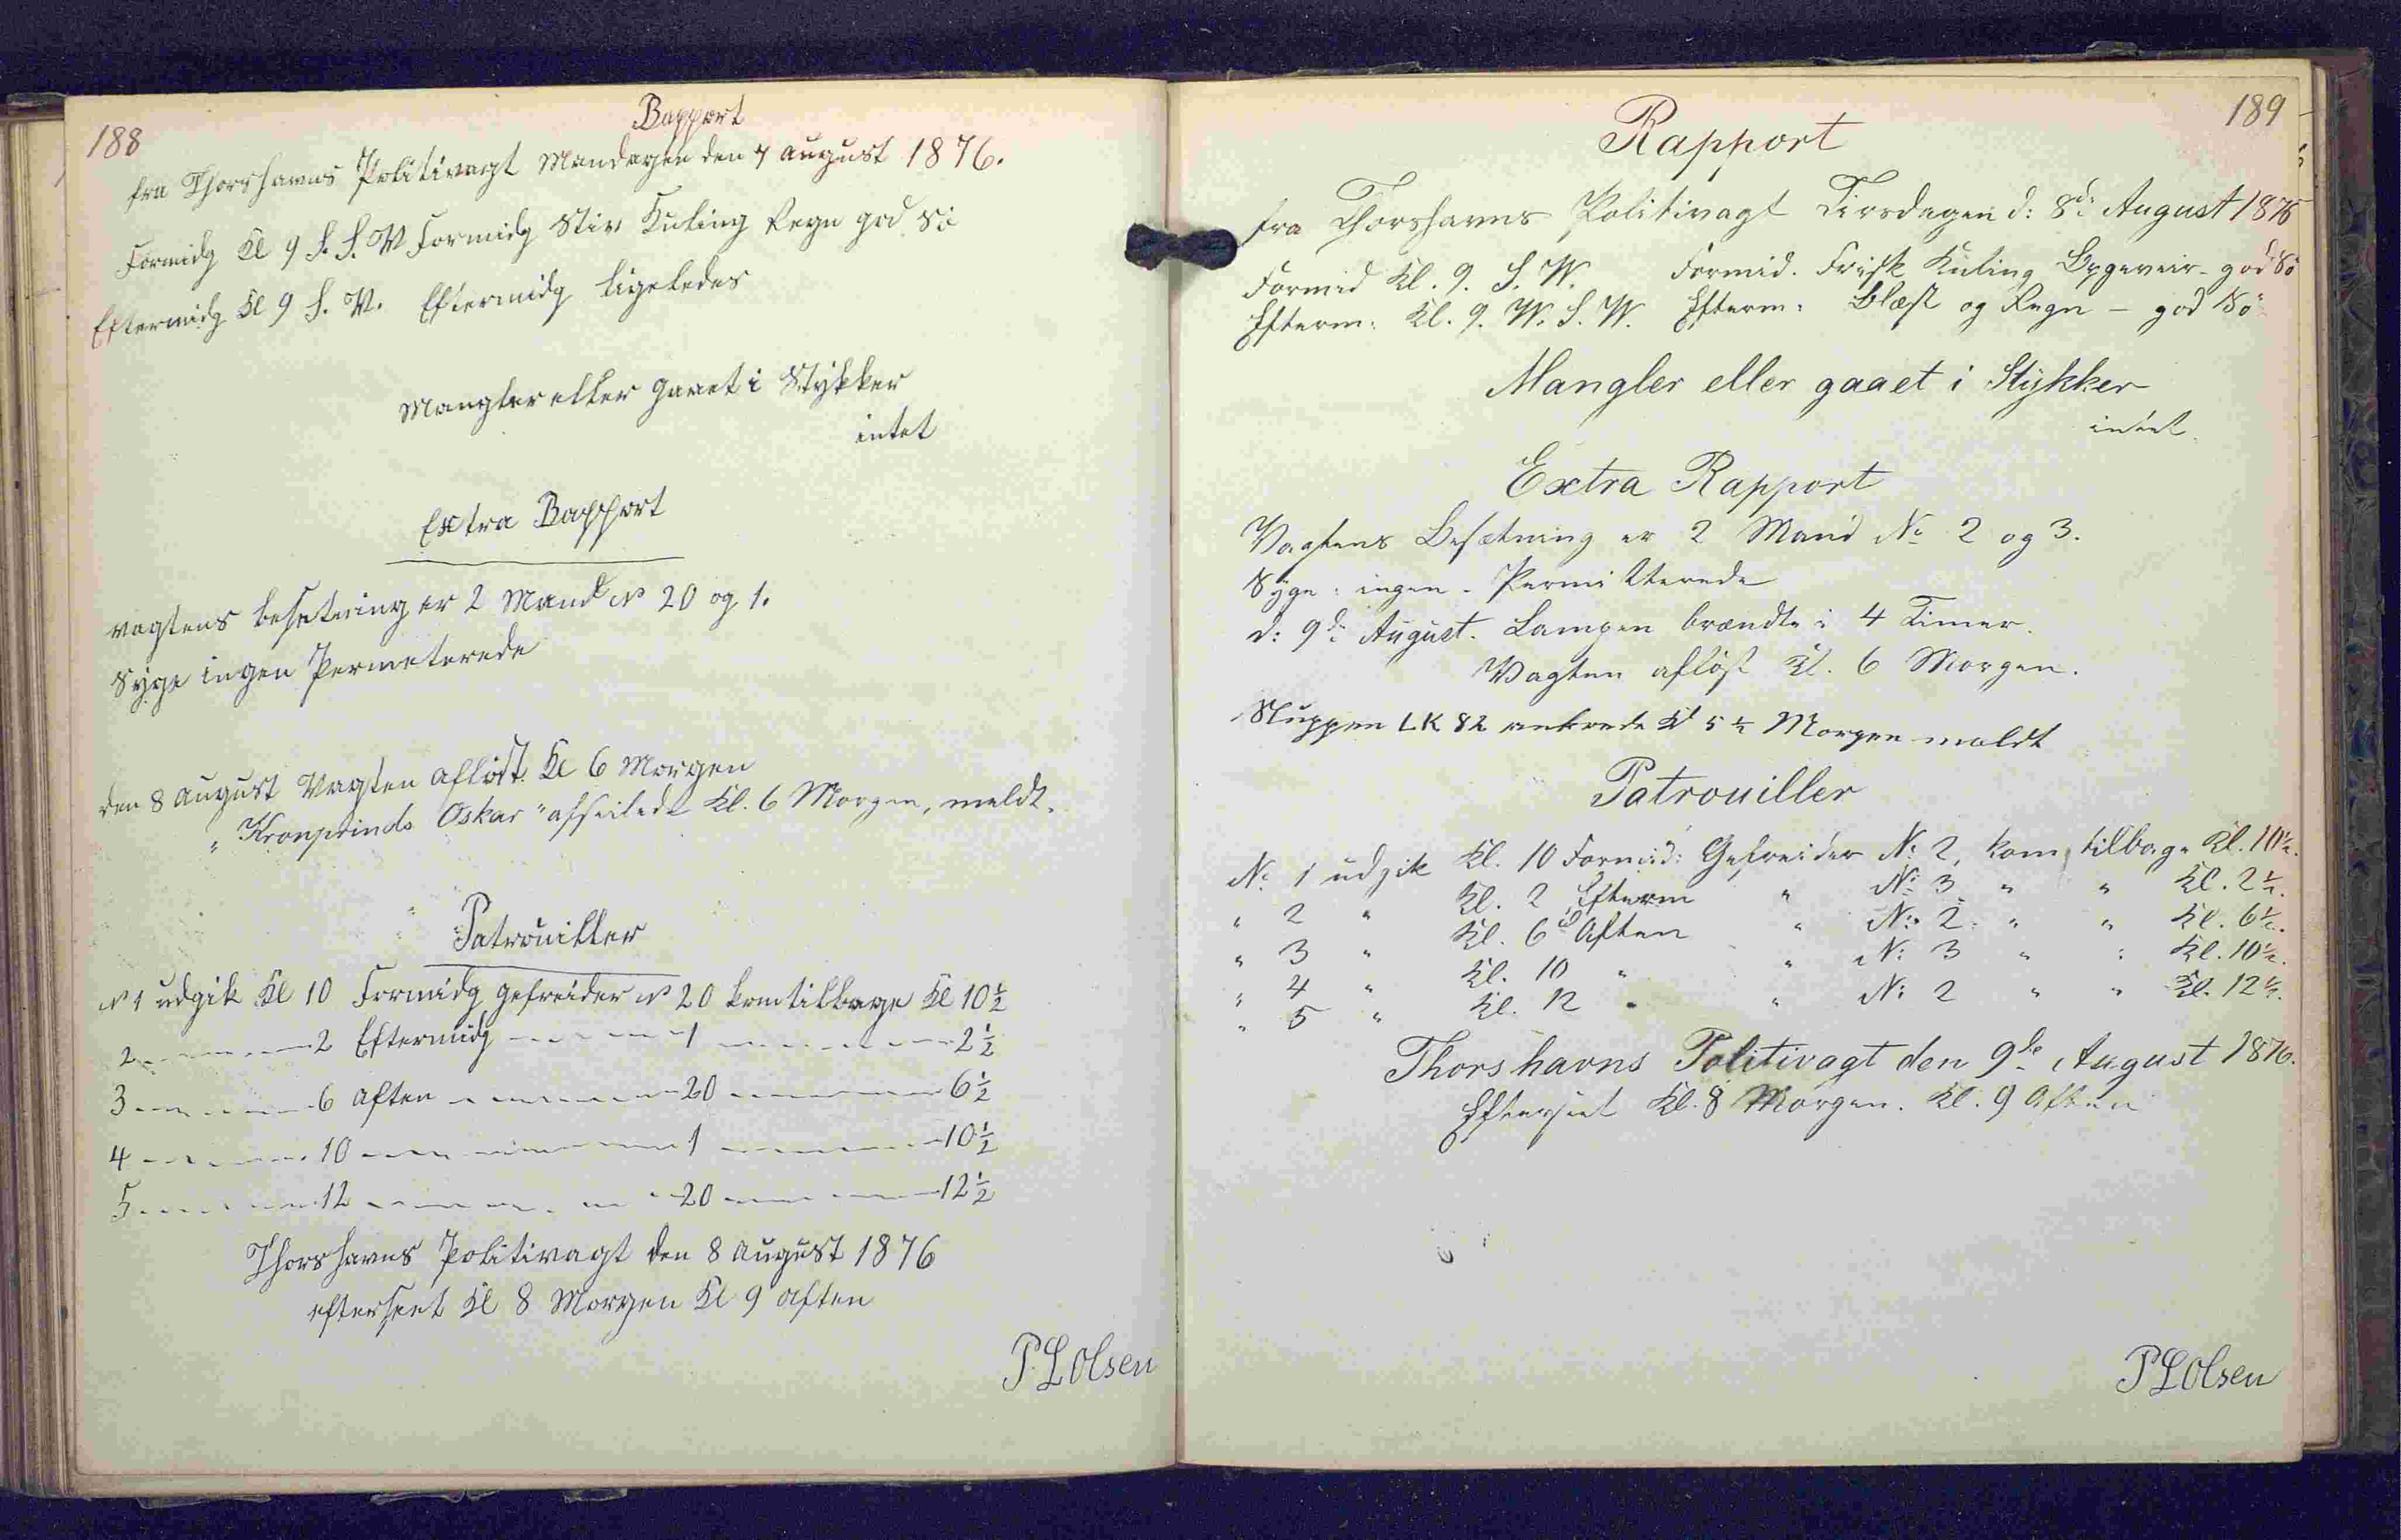 188
Rapport
fra Thorshavns Politivagt Mandagen den 7 August 1876.
Formidg Kl 9 S. S. W Formidg Stiv Kuling Regn god Sö
Eftermidg Kl 9 S. W. Eftermidg ligeledes
Mangler eller gaaet i Stykker
intet
Extra Rapport
vagtens besætning er 2 Mand No 20 og 1.
Syge ingen Permeterede
den 8 August Vagten afløst Kl 6 Morgen
" Kronprinds Oskar " afseilede Kl. 6 Morgen, meldt.
Patrouiller
No 1 udgik Kl 10 Formidg gefreider No 20 kom tilbage Kl 10 1/2
2 - - - - 2 Eftermidg - - - - 1 - - - - 2 1/2
3 - - - - 6 Aften - - - - 20 - - - - 6 1/2
4 - - - - 10 - - - - 1 - - - - 10 1/2
5 - - - - 12 - - - - 20 - - - - 12 1/2
Thorshavns Politivagt den 8 August 1876
efterseet Kl 8 Morgen Kl 9 Aften
P. L Olsen
189
Rapport
fra Thorshavns Politivagt Tirsdagen d: 8de August 1876
Formid Kl. 9. S. W. Formid. Frisk Kuling Bygeveir - god Sö
Efterm: Kl. 9. W. S. W. Efterm: Blæst og Regn - god Sö
Mangler eller gaaet i Stykker
intet
Extra Rapport
Vagtens Besætning er 2 Mand No 2 og 3.
Syge: ingen - Permitterede
d: 9de August. Lampen brændte i 4 Timer.
Vagten afløst Kl. 6 Morgen.
Sluppen LK 82 ankrede Kl 5 1/2 Morgen meldt
Patrouiller
No 1 udgik Kl. 10 Formid: Gefreider No 2, kom tilbage Kl. 10 1/2.
" 2 " Kl. 2 Efterm " No 3 " " Kl. 2 1/2.
" 3 " Kl. 6 Aften " No 2 " " Kl. 6 1/2.
" 4 " Kl. 10 " " No 3 " " Kl. 10 1/2.
" 5 " Kl. 12 " " No 2 " " Kl. 12 1/2.
Thorshavns Politivagt den 9de August 1876.
Efterseet Kl. 8 Morgen. Kl. 9 Aften
P L Olsen